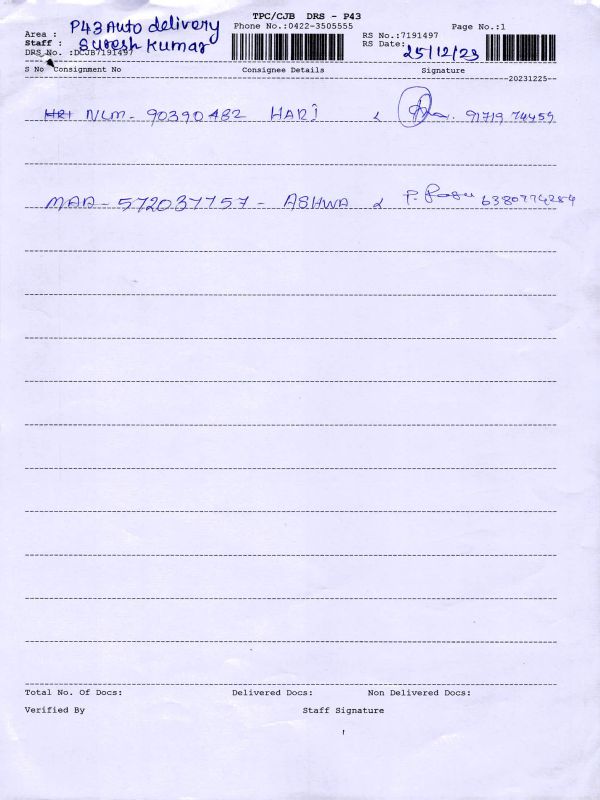 TPC/CJB DRS - P43
Phone No.:0422-3505555 Page No.:1
Area : P43 Auto delivery
Staff : Suresh Kumar
RS No.:7191497
RS Date: 25/12/23
DRS No. :DCJB7191497
S No Consignment No Consignee Details Signature
20231225
NLM - 90390482 HARI 91719 74459
MAA - 572037757 - ASHWA 6380774284
Total No. Of Docs: Delivered Docs: Non Delivered Docs:
Verified By Staff Signature